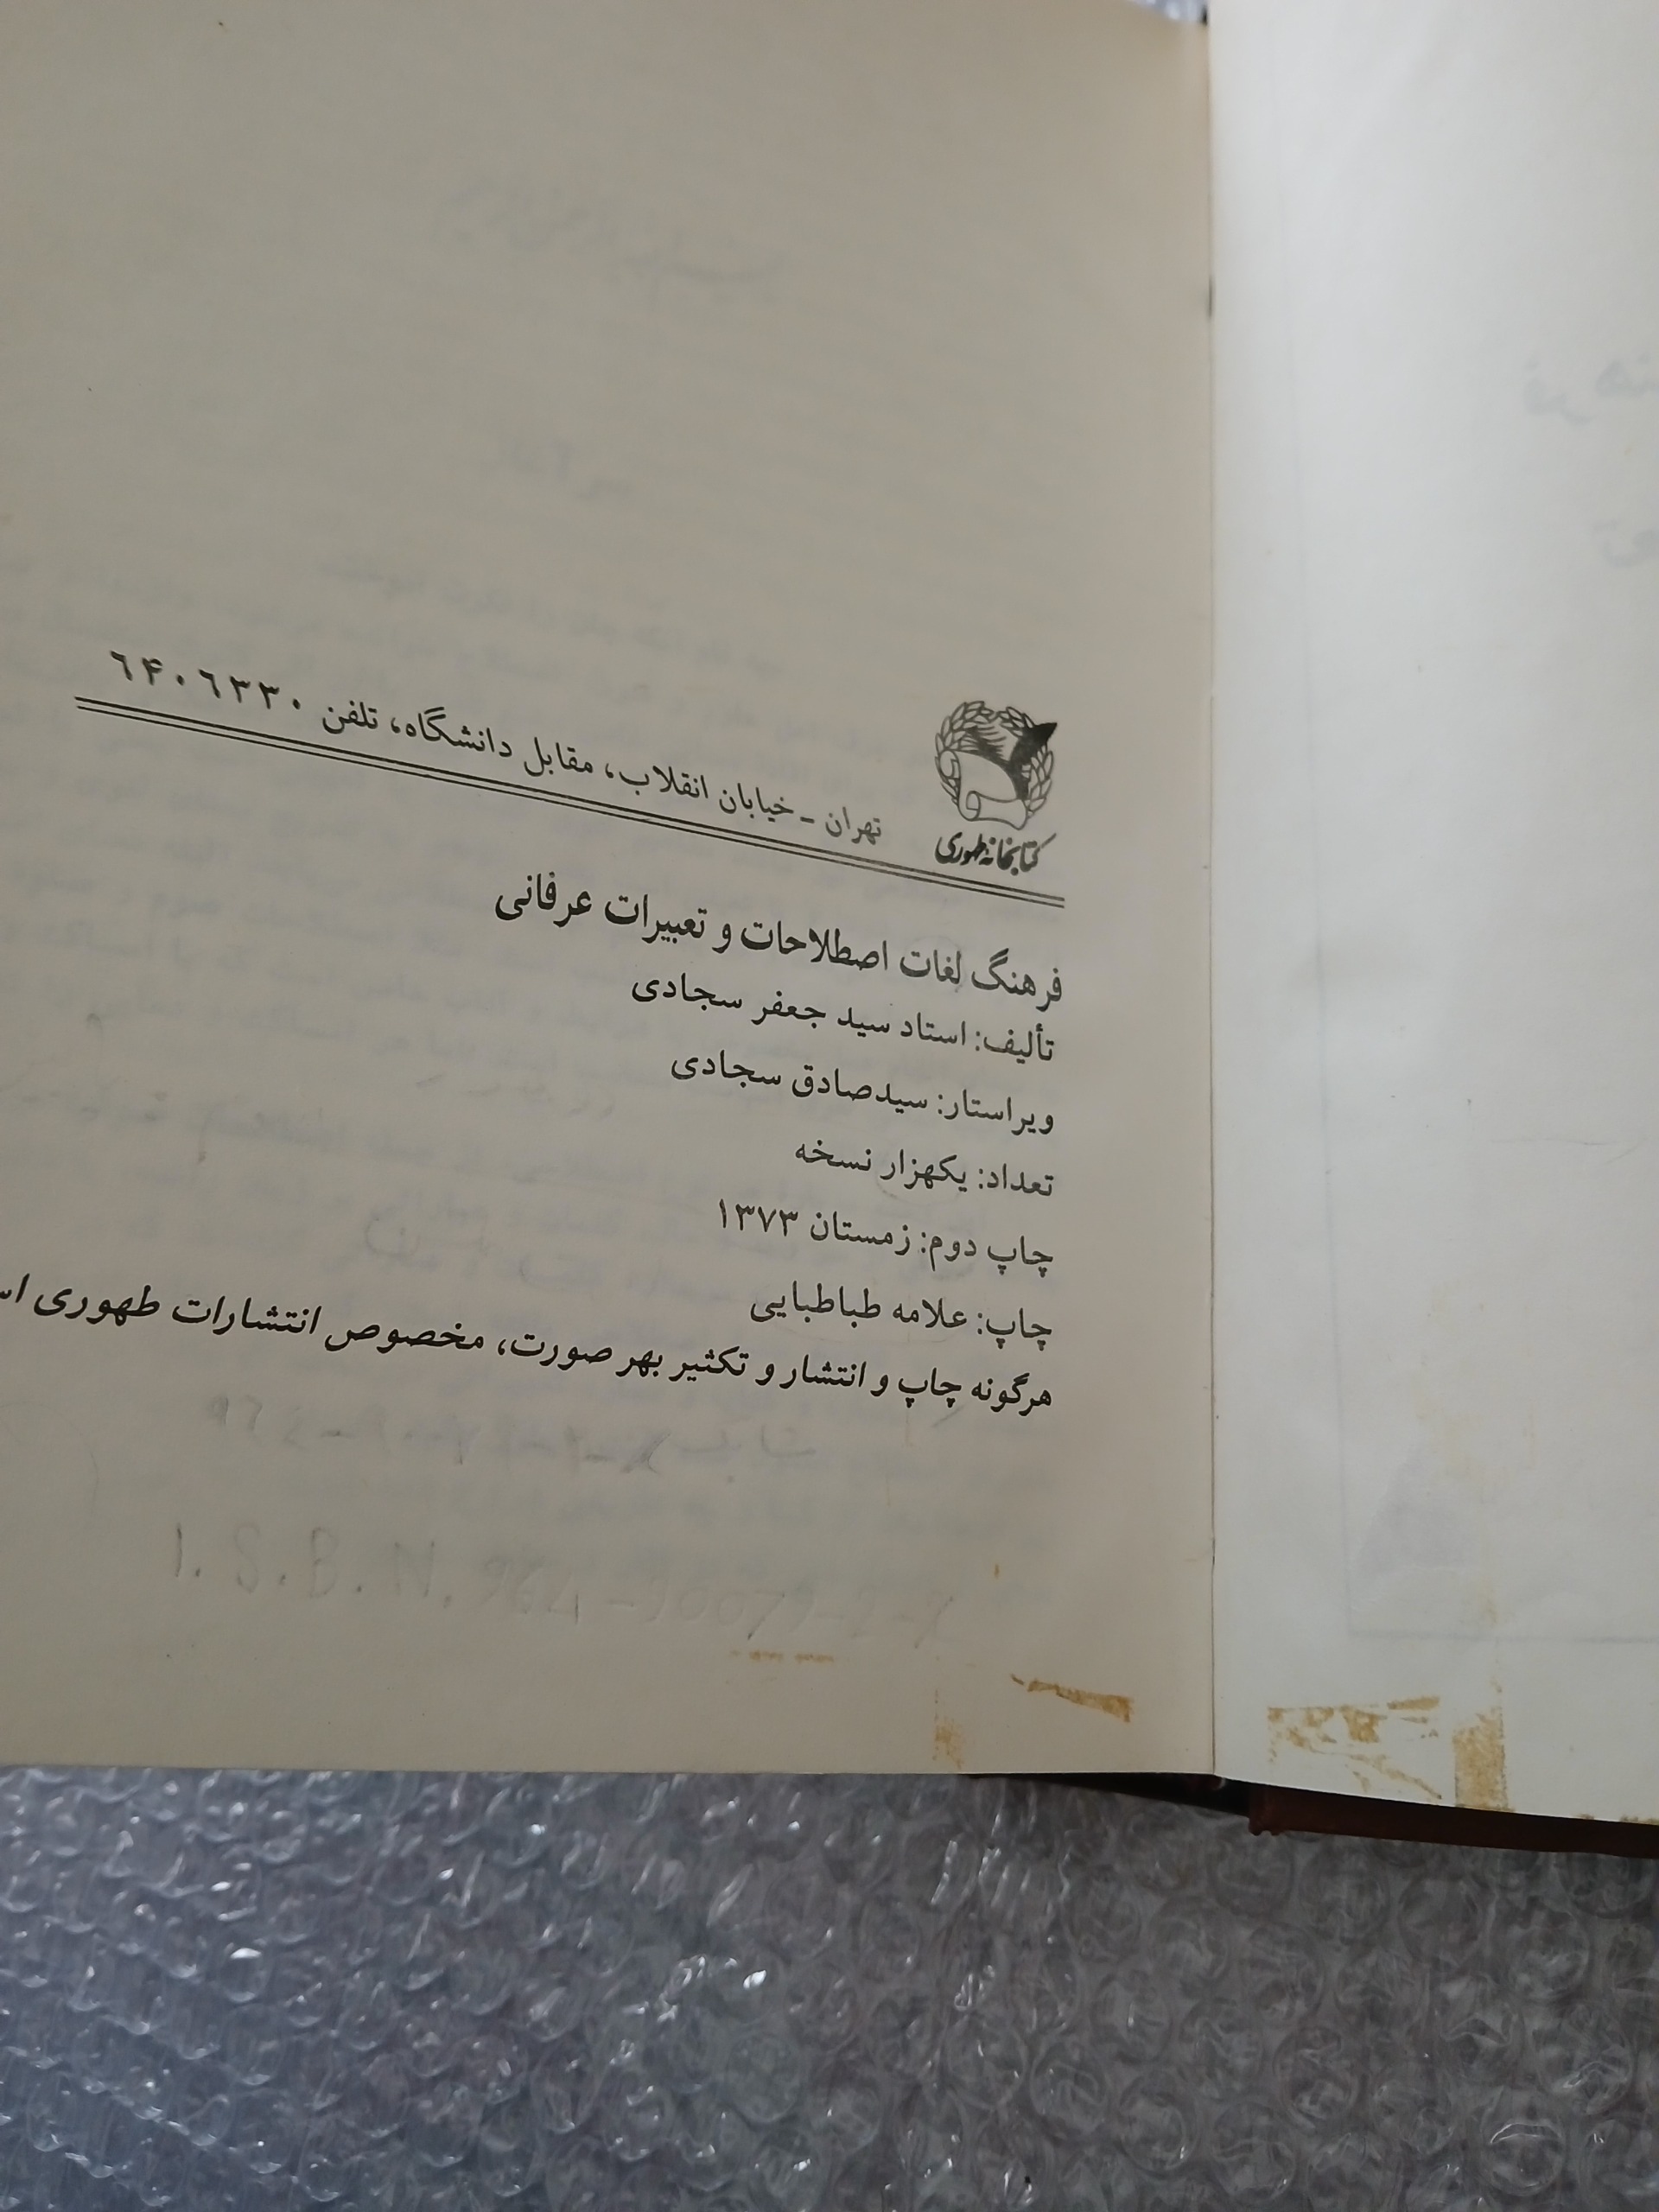 کتابخانه طهوری
تهران ـ خیابان انقلاب، مقابل دانشگاه، تلفن ٦۴۰٦۳۳۰
فرهنگ لغات اصطلاحات و تعبیرات عرفانی
تألیف: استاد سید جعفر سجادی
ویراستار: سیدصادق سجادی
تعداد: یکهزار نسخه
چاپ دوم: زمستان ۱۳۷۳
چاپ: علامه طباطبایی
هرگونه چاپ و انتشار و تکثیر بهر صورت، مخصوص انتشارات طهوری
I.S.B.N. 964-